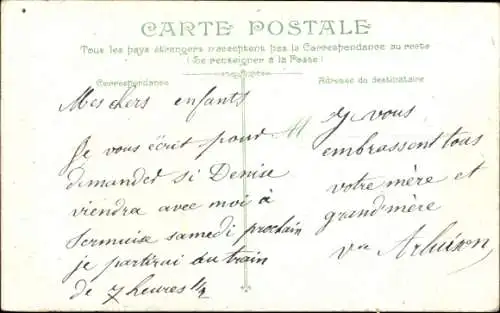 CARTE POSTALE
Tous les pays étrangers n'acceptent pas la Correspondance au recto
(Se renseigner à la Poste)
Correspondance
Adresse du destinataire
Mes chers enfants
Je vous écrit pour
demander si Denise
viendra avec moi à
samedi prochain
je partirai au train
de 7 heures 1/2
M
Je vous
embrassent tous
votre mère et
grand'mère
Vve